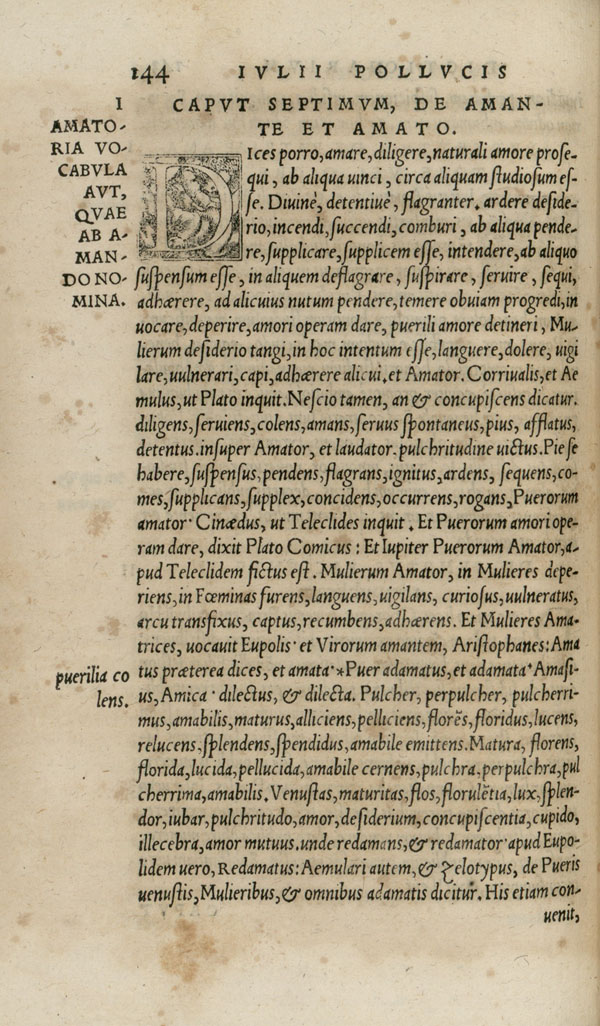 144 IVLII POLLVCIS
I
AMATO-
RIA VO-
CABVLA
AVT,
QVAE
AB A-
MAN-
DO NO-
MINA.
CAPVT SEPTIMVM, DE AMAN-
TE ET AMATO.
DIces porro, amare, diligere, naturali amore prose-
qui, ab aliqua uinci, circa aliquam studiosum es-
se. Diuinè, detentiuè, flagranter. ardere deside-
rio, incendi, succendi, comburi, ab aliqua pende-
re, supplicare, supplicem esse, intendere, ab aliquo
suspensum esse, in aliquem deflagrare, suspirare, seruire, sequi,
adhærere, ad alicuius nutum pendere, temere obuiam progredi, in
uocare, deperire, amori operam dare, puerili amore detineri, Mu-
lierum desiderio tangi, in hoc intentum esse, languere, dolere, uigi
lare, uulnerari, capi, adhærere alicui. et Amator. Corriualis, et Ae
mulus, ut Plato inquit. Nescio tamen, an & concupiscens dicatur.
diligens, seruiens, colens, amans, seruus spontaneus, pius, afflatus,
detentus. insuper Amator, et laudator. pulchritudine uictus. Pie se
habere, suspensus, pendens, flagrans, ignitus, ardens, sequens, co-
mes, supplicans, supplex, concidens, occurrens, rogans, Puerorum
amator· Cinædus, ut Teleclides inquit. Et Puerorum amori ope-
ram dare, dixit Plato Comicus: Et Iupiter Puerorum Amator, a-
pud Teleclidem fictus est. Mulierum Amator, in Mulieres depe-
riens, in Fœminas furens, languens, uigilans, curiosus, uulneratus,
arcu transfixus, captus, recumbens, adhærens. Et Mulieres Ama-
trices, uocauit Eupolis· et Virorum amantem, Aristophanes: Ama
tus præterea dices, et amata·*Puer adamatus, et adamata· Amasi-
us, Amica· dilectus, & dilecta. Pulcher, perpulcher, pulcherri-
mus, amabilis, maturus, alliciens, pelliciens, florẽs, floridus, lucens,
relucens, splendens, spendidus, amabile emittens. Matura, florens,
florida, lucida, pellucida, amabile cernens, pulchra. perpulchra, pul
cherrima, amabilis. Venustas, maturitas, flos, florulẽtia, lux, splen-
dor, iubar, pulchritudo, amor, desiderium, concupiscentia, cupido,
illecebra, amor mutuus. unde redamans, & redamator· apud Eupo-
lidem uero, Redamatus: Aemulari autem, & zelotypus, de Pueris
uenustis, Mulieribus, & omnibus adamatis dicitur. His etiam con-
uenit,
puerilia co
lens.